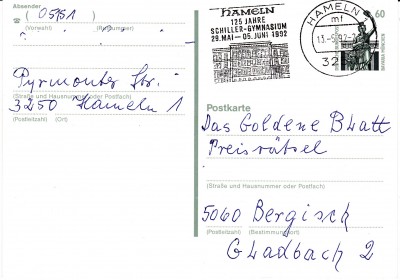 Absender
( 05151 )
(Vorwahl) (Rufnummer)
Pyrmonter Str.
(Straße und Hausnummer oder Postfach)
3250 Hameln 1
(Postleitzahl) (Ort)
HAMELN
125 JAHRE
SCHILLER-GYMNASIUM
29.MAI — 05.JUNI 1992
HAMELN 1
mf
32
60
Postkarte
Das Goldene Blatt
Preisrätsel
(Straße und Hausnummer oder Postfach)
5060 Bergisch
(Postleitzahl) (Bestimmungsort)
Gladbach 2